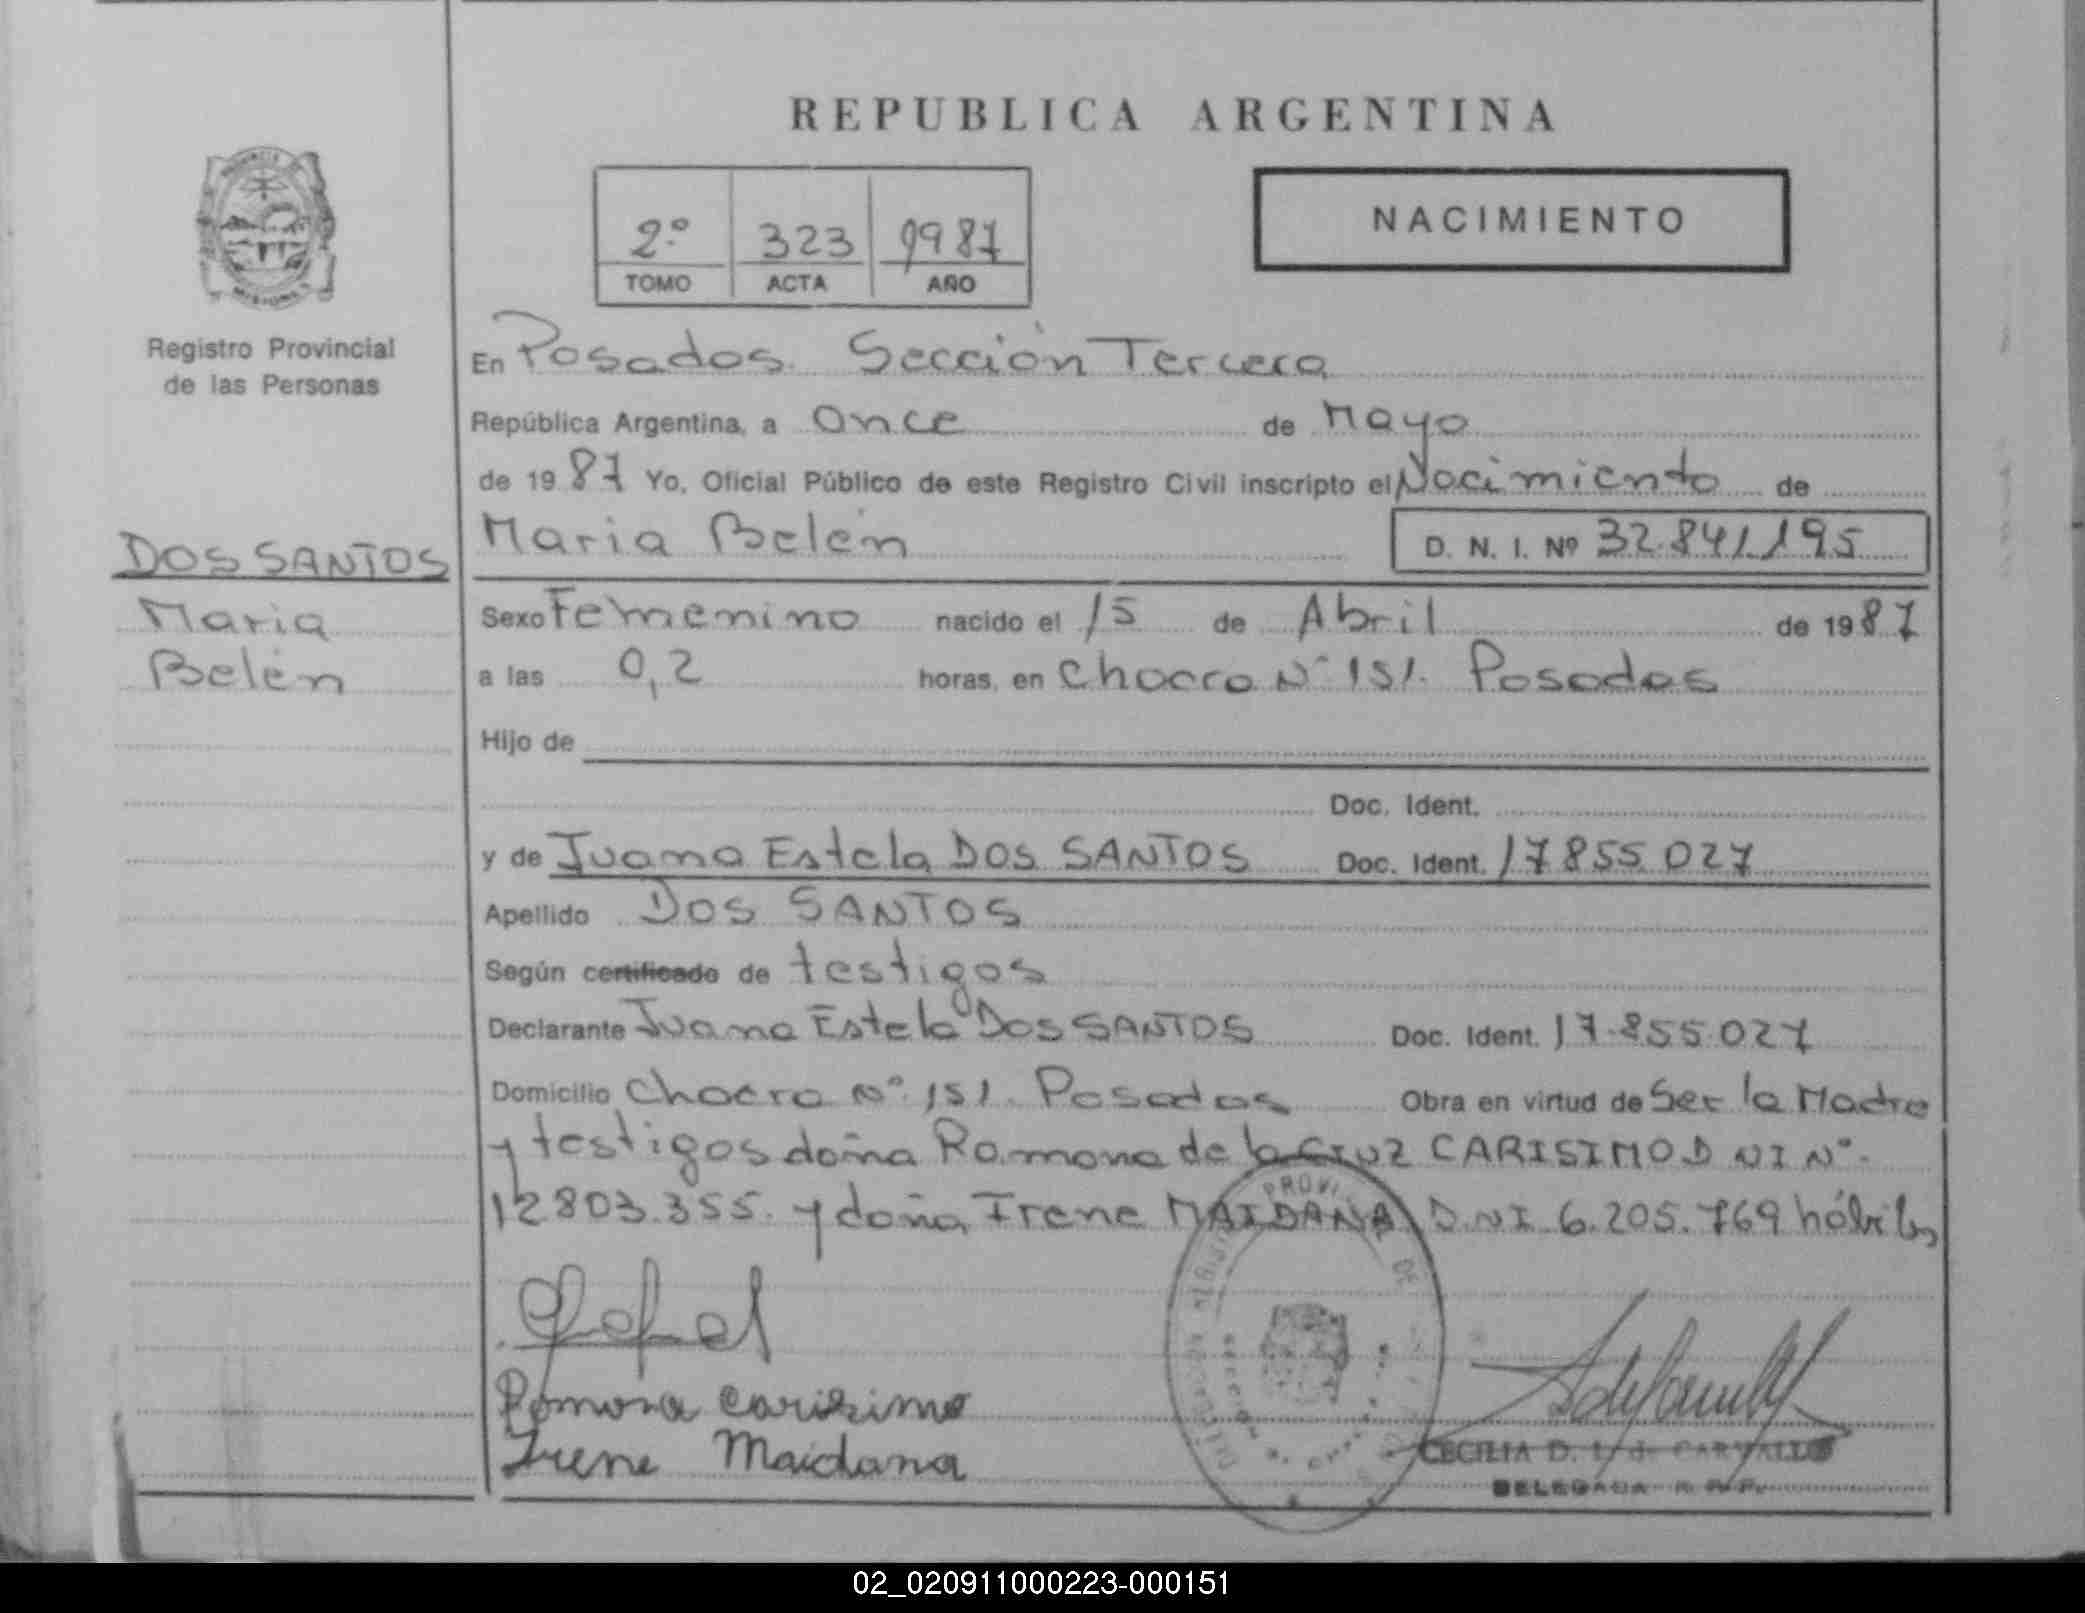 REPUBLICA ARGENTINA
2º 323 1987
TOMO ACTA AÑO
NACIMIENTO
Registro Provincial
de las Personas
En Posadas. Sección Tercera
República Argentina, a once de Mayo
de 1987 Yo, Oficial Público de este Registro Civil inscripto el Nacimiento de
Maria Belén D. N. I. Nº 32.841.195
DOS SANTOS
Maria
Belén
Sexo Femenino nacido el 15 de Abril de 1987
a las 0,2 horas, en Chacra Nº 151. Posadas
Hijo de
Doc. Ident.
y de Juana Estela DOS SANTOS Doc. Ident. 17855.027
Apellido DOS SANTOS
Según certificado de testigos
Declarante Juana Estela DOS SANTOS Doc. Ident. 17.855.027
Domicilio Chacra Nº 151. Posadas Obra en virtud de Ser la Madre
y testigos doña Ramona de la Cruz CARISIMO D NI Nº.
12803.355. y doña Irene MAIDANA D.NI 6.205.769 hábiles
Romona Carisimo
Irene Maidana
PROVI DE
CECILIA D. L. d. CARVALLO
DELEGADA R. P. P.
02_020911000223-000151